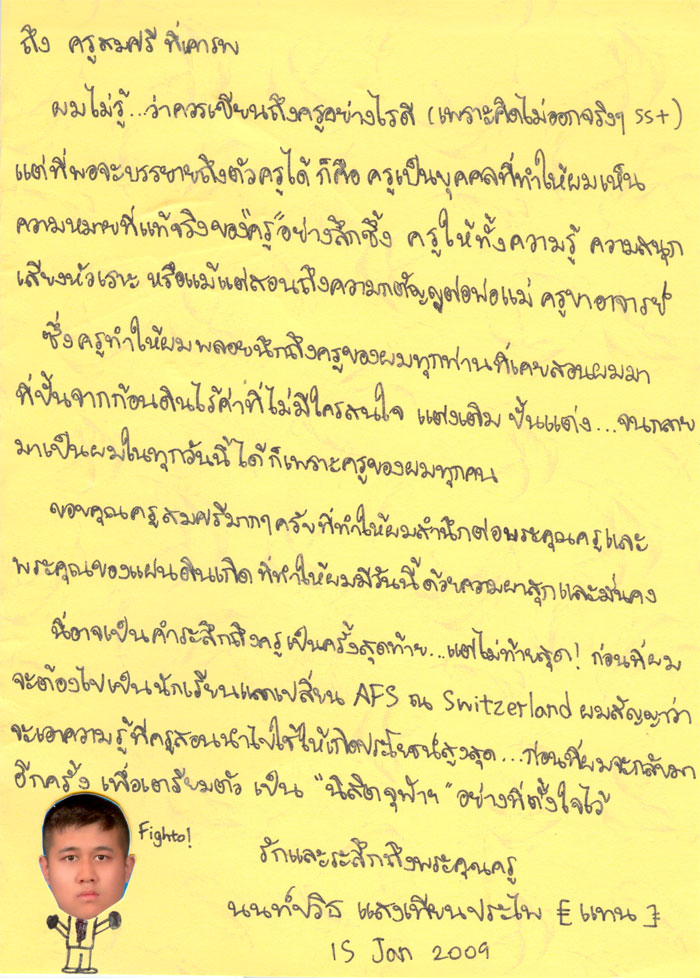 ถึง ครูสมศรี ที่เคารพ
ผมไม่รู้...ว่าควรเขียนถึงครูอย่างไรดี (เพราะคิดไม่ออกจริงๆ ss+)
แต่ที่พอจะบรรยายถึงตัวครูได้ ก็คือ ครูเป็นบุคคลที่ทำให้ผมเห็น
ความหมายที่แท้จริงของ"ครู"อย่างลึกซึ้ง ครูให้ทั้งความรู้ ความสนุก
เสียงหัวเราะ หรือแม้แต่สอนถึงความกตัญญูต่อพ่อแม่ ครูบาอาจารย์
ซึ่งครูทำให้ผมพลอยนึกถึงครูของผมทุกท่านที่เคยสอนผมมา
ที่ปั้นจากก้อนดินไร้ค่าที่ไม่มีใครสนใจ แต่งเติม ปั้นแต่ง...จนกลาย
มาเป็นผมในทุกวันนี้ได้ก็เพราะครูของผมทุกคน
ขอบคุณครูสมศรีมากๆครับที่ทำให้ผมสำนึกต่อพระคุณครูและ
พระคุณของแผ่นดินเกิด ที่ทำให้ผมมีวันนี้ด้วยความผาสุกและมั่นคง
นี่อาจเป็นคำระลึกถึงครูเป็นครั้งสุดท้าย...แต่ไม่ท้ายสุด! ก่อนที่ผม
จะต้องไปเป็นนักเรียนแลกเปลี่ยน AFS ณ Switzerland ผมสัญญาว่า
จะเอาความรู้ที่ครูสอนนำไปใช้ให้เกิดประโยชน์สูงสุด...ก่อนที่ผมจะกลับมา
อีกครั้ง เพื่อเตรียมตัว เป็น "นิสิตจุฬาฯ" อย่างที่ตั้งใจไว้
Fighto!
รักและระลึกถึงพระคุณครู
นนท์ปวิธ แสงเทียนประไพ [แทน]
15 Jan 2009